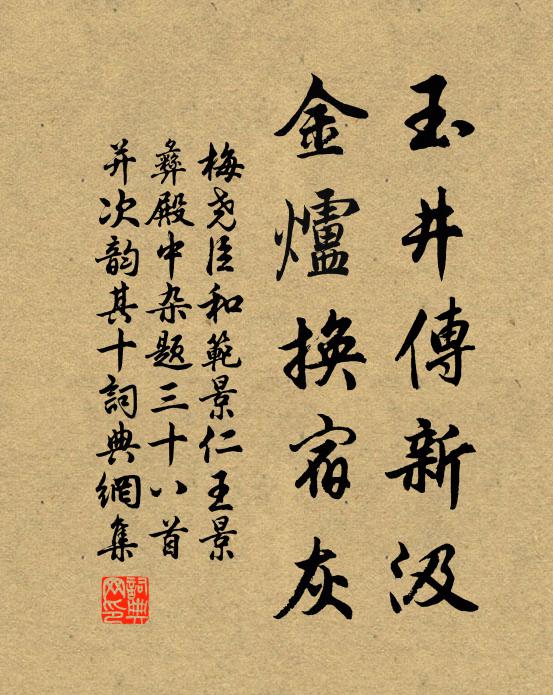 玉井傳新汲
金爐換宿灰
梅尧臣和範景仁王景
彝殿中杂题三十八首
并次韵其十詞典網集
詞典網印